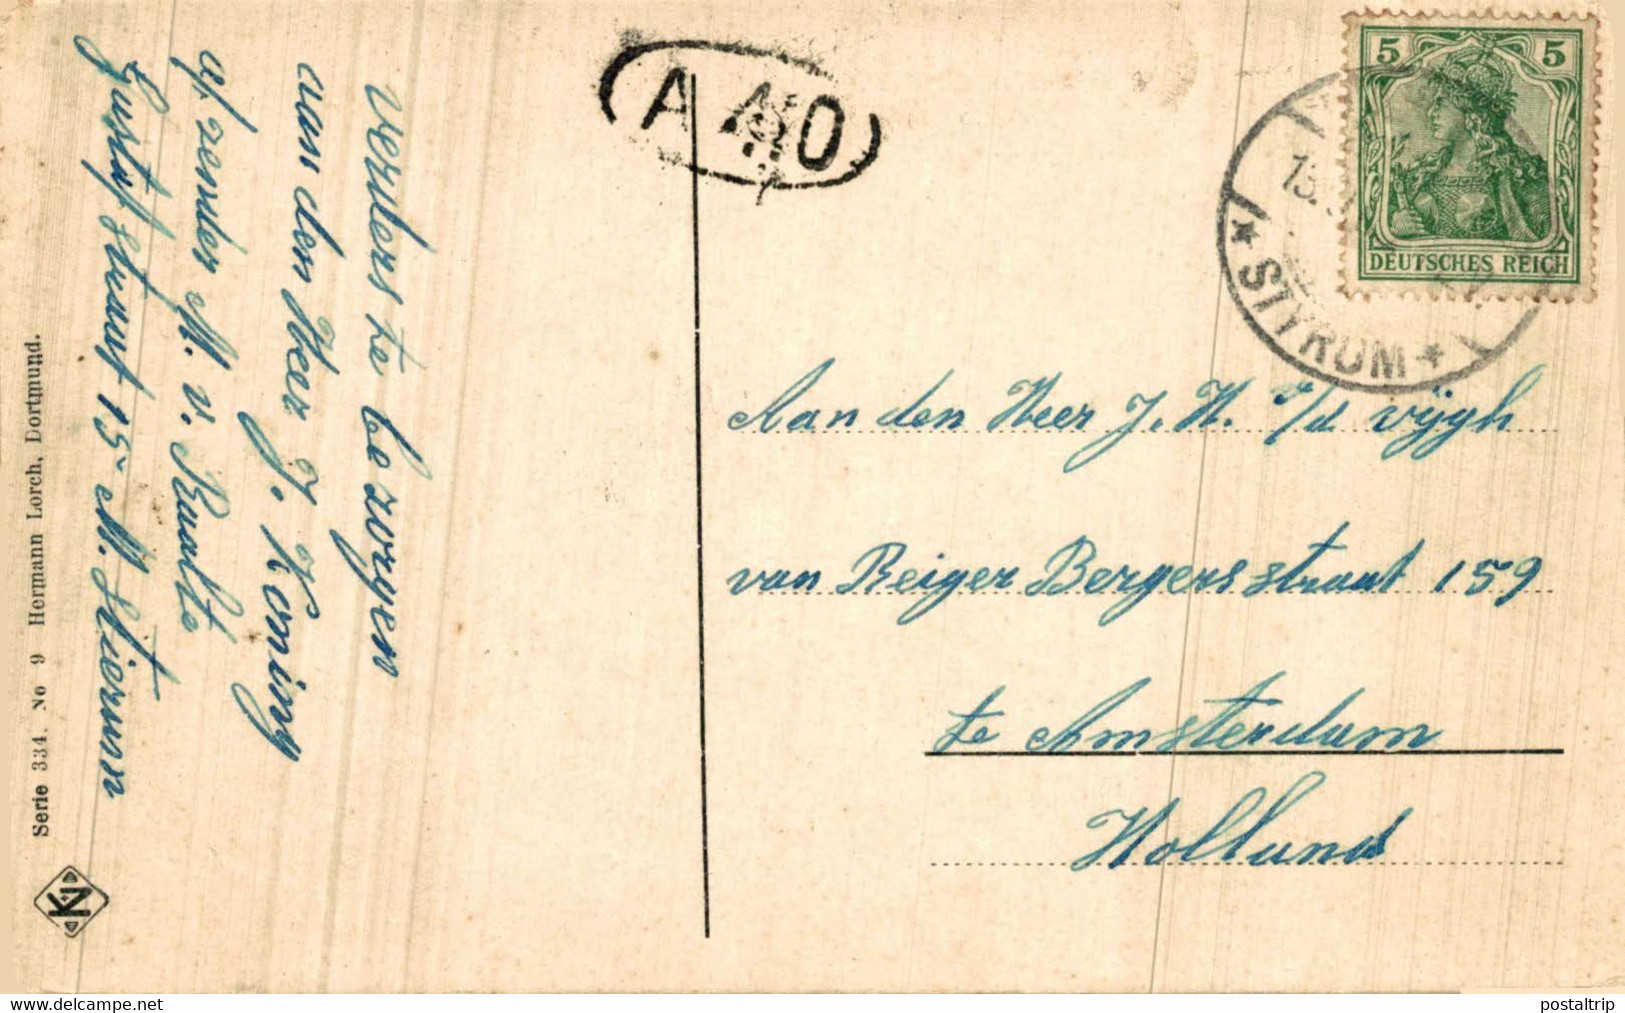 verders te bezorgen
aan den Heer J. Koning
afzender M. v. Raalte
Gustafstraat 15 M. Stierum
Serie 334. No 9 Hermann Lorch, Dortmund.
K
A 40
5 5
DEUTSCHES REICH
* STYRUM *
Aan den Heer J. H. v/d Vijgh
van Reiger Bergersstraat 159
te Amsterdam
Holland
https://www.delcampe.net
postaltrip